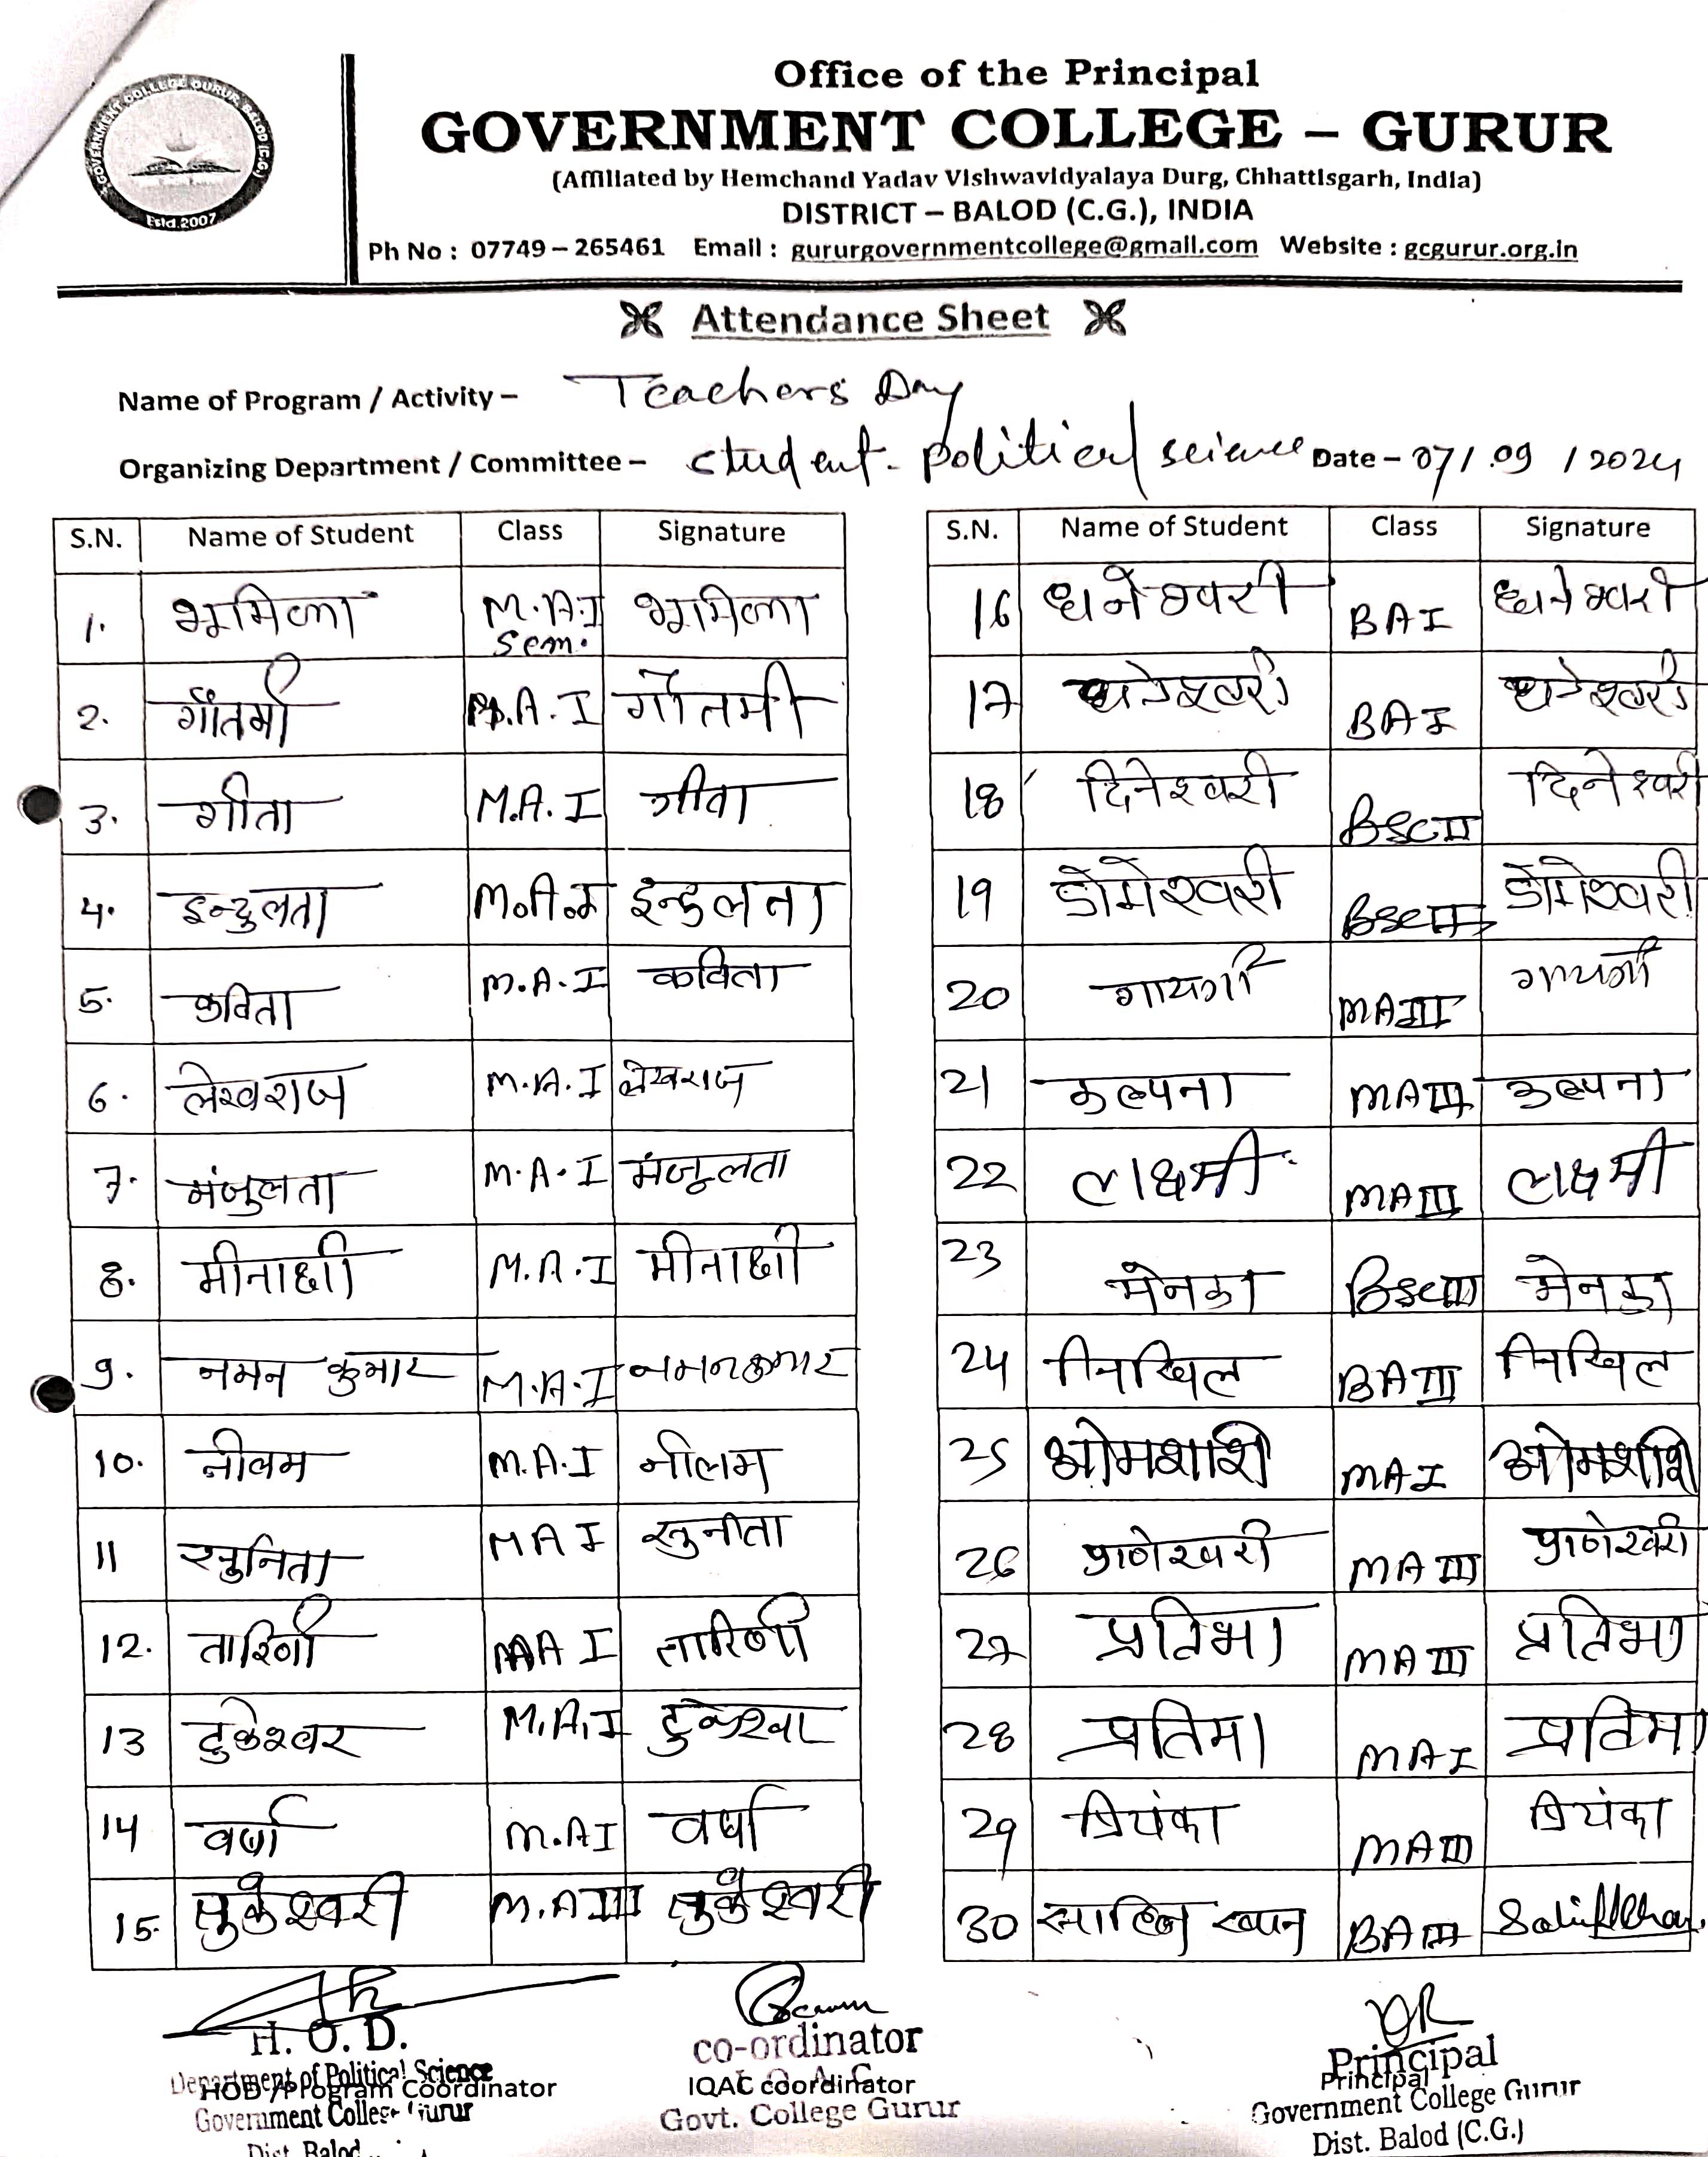 GOVERNMENT COLLEGE GURUR BALOD (C.G.)
Estd.2007
Office of the Principal
GOVERNMENT COLLEGE – GURUR
(Affiliated by Hemchand Yadav Vishwavidyalaya Durg, Chhattisgarh, India)
DISTRICT – BALOD (C.G.), INDIA
Ph No : 07749 – 265461 Email : gururgovernmentcollege@gmail.com Website : gcgurur.org.in
Attendance Sheet
Name of Program / Activity – Teachers Day
Organizing Department / Committee – student political science Date – 07/.09/2024
S.N. Name of Student Class Signature
1. भूमिका M.A.I Sem. भूमिका
2. गौतमी M.A.I गौतमी
3. गीता M.A.I गीता
4. इन्दुलता M.A.I इन्दुलता
5. कविता M.A.I कविता
6. लेखराज M.A.I लेखराज
7. मंजुलता M.A.I मंजूलता
8. मीनाक्षी M.A.I मीनाक्षी
9. नमन कुमार M.A.I नमन कुमार
10. नीलम M.A.I नीलम
11 सुनिता MAI सुनीता
12. तारिणी MAI तारिणी
13 टुकेश्वर M.A.I
14 वर्षा M.AI वर्षा
15. M.A III
S.N. Name of Student Class Signature
16 धनेश्वरी BAI धनेश्वरी
17 धनेश्वरी BAI धनेश्वरी
18 दिनेश्वरी BSC II दिनेश्वरी
19 डोमेश्वरी डोमेश्वरी
20 गायत्री MAIII गायत्री
21 कल्पना MAIII कल्पना
22 लक्ष्मी MAIII लक्ष्मी
23 मेनका BscIII मेनका
24 निखिल BAIII निखिल
25 ओमशशि MAI ओमशशि
26 प्राणेश्वरी MAIII प्राणेश्वरी
27 प्रतिभा MAIII प्रतिभा
28 प्रतिमा MAI प्रतिमा
29 प्रियंका MAIII प्रियंका
30 खान BAIII
H. O. D.
Department of Political Science
HOD / Program Coordinator
Government College Gurur
Dist. Balod
co-ordinator
IQAC coordinator
Govt. College Gurur
Principal
Principal
Government College Gurur
Dist. Balod (C.G.)